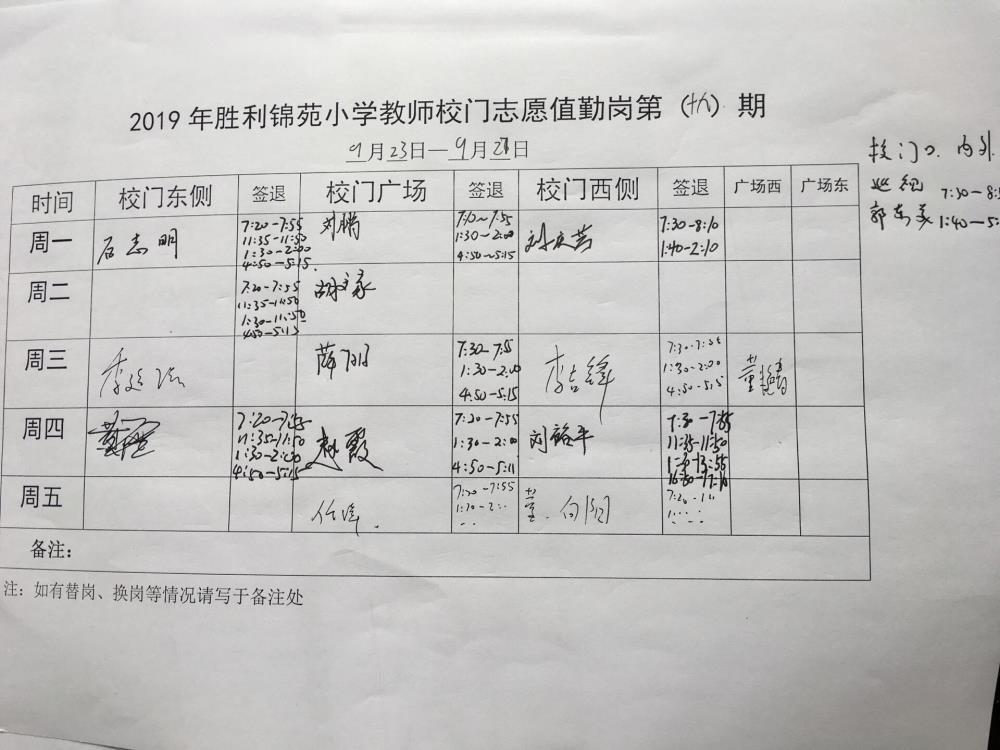 2019 年胜利锦苑小学教师校门志愿值勤岗第（十八）期
9月23日—9月27日
校门口.内外
7:30-8:
1:40-5:
时间 校门东侧 签退 校门广场 签退 校门西侧 签退 广场西 广场东
周一 石志明 7:20-7:55 刘鹏 7:10~7:55 7:30-8:10
11:35-11:50 1:30~2:00 1:40-2:10
1:30-2:00 4:50~5:15
4:50-5:15.
周二 7:20-7:55
11:35-11:50
1:30-11:50
4:50-5:15
周三 薛 7:30-7:55 李吉锋 7:30-7:55 董艳青
1:30-2:00 1:30-2:00
4:50-5:15 4:50-5:15
周四 7:20-7:55 赵霞 7:20-7:55 刘裕平 7:30-7:55
11:35-11:50 1:30-2:00 11:35-11:50
1:30-2:00 4:50-5:11
4:50-5:15
周五 任 7:20-7:55 董向阳
备注：
注：如有替岗、换岗等情况请写于备注处